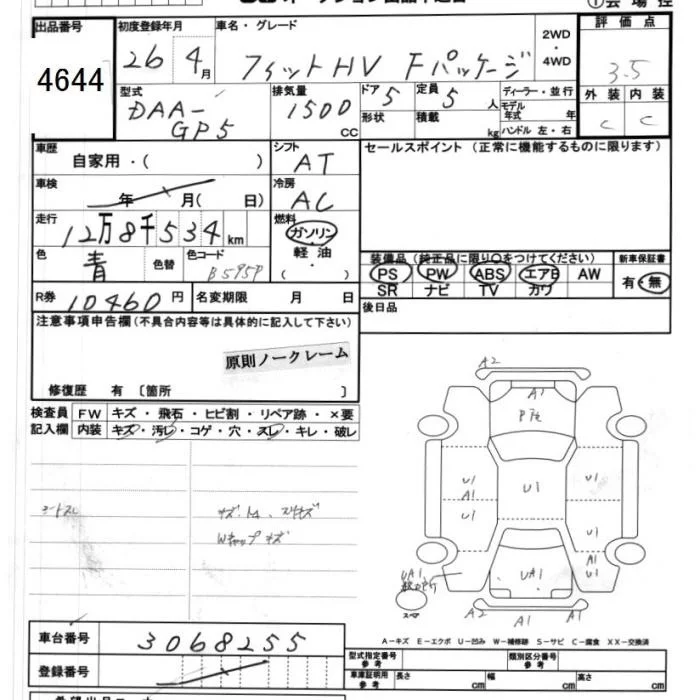 出品番号 初度登録年月 車名・グレード 評価点
4644 26 4月 フィットHV Fパッケージ 2WD・4WD 3.5
型式 排気量 ドア 定員 ディーラー・並行 外装 内装
DAA-GP5 1500 CC 5 5人 モデル年式 年 C C
形状 積載 kg ハンドル 左・右
車歴 シフト セールスポイント (正常に機能するものに限ります)
自家用・( ) AT
車検 冷房
年 月( 日) AC
走行 燃料
12万8千534km ガソリン
軽油
・( )
色 色替 色コード
青 B595P
装備品 (純正品に限り○をつけてください) 新車保証書
PS PW ABS エアB AW 有・無
SR ナビ TV カワ
R券 10460円 名変期限 月 日 後日品
注意事項申告欄(不具合内容等は具体的に記入して下さい)
原則ノークレーム
修復歴 有 〔箇所 〕
検査員 FW キズ・飛石・ヒビ割・リペア跡・×要
記入欄 内装 キズ・汚レ・コゲ・穴・スレ・キレ・破レ
Wキャップキズ
A2
A1
U1 U1 U1
A1
U1 U1
A1
UA1 UA1 U1
スペア
A2 A1 A1
A-キズ E-エクボ U-凹み W-補修跡 S-サビ C-腐食 XX-交換済
車台番号 3068255
型式指定番号 参考 類別区分番号 参考
登録番号
車庫証明用 参考 長さ cm 幅 cm 高さ cm